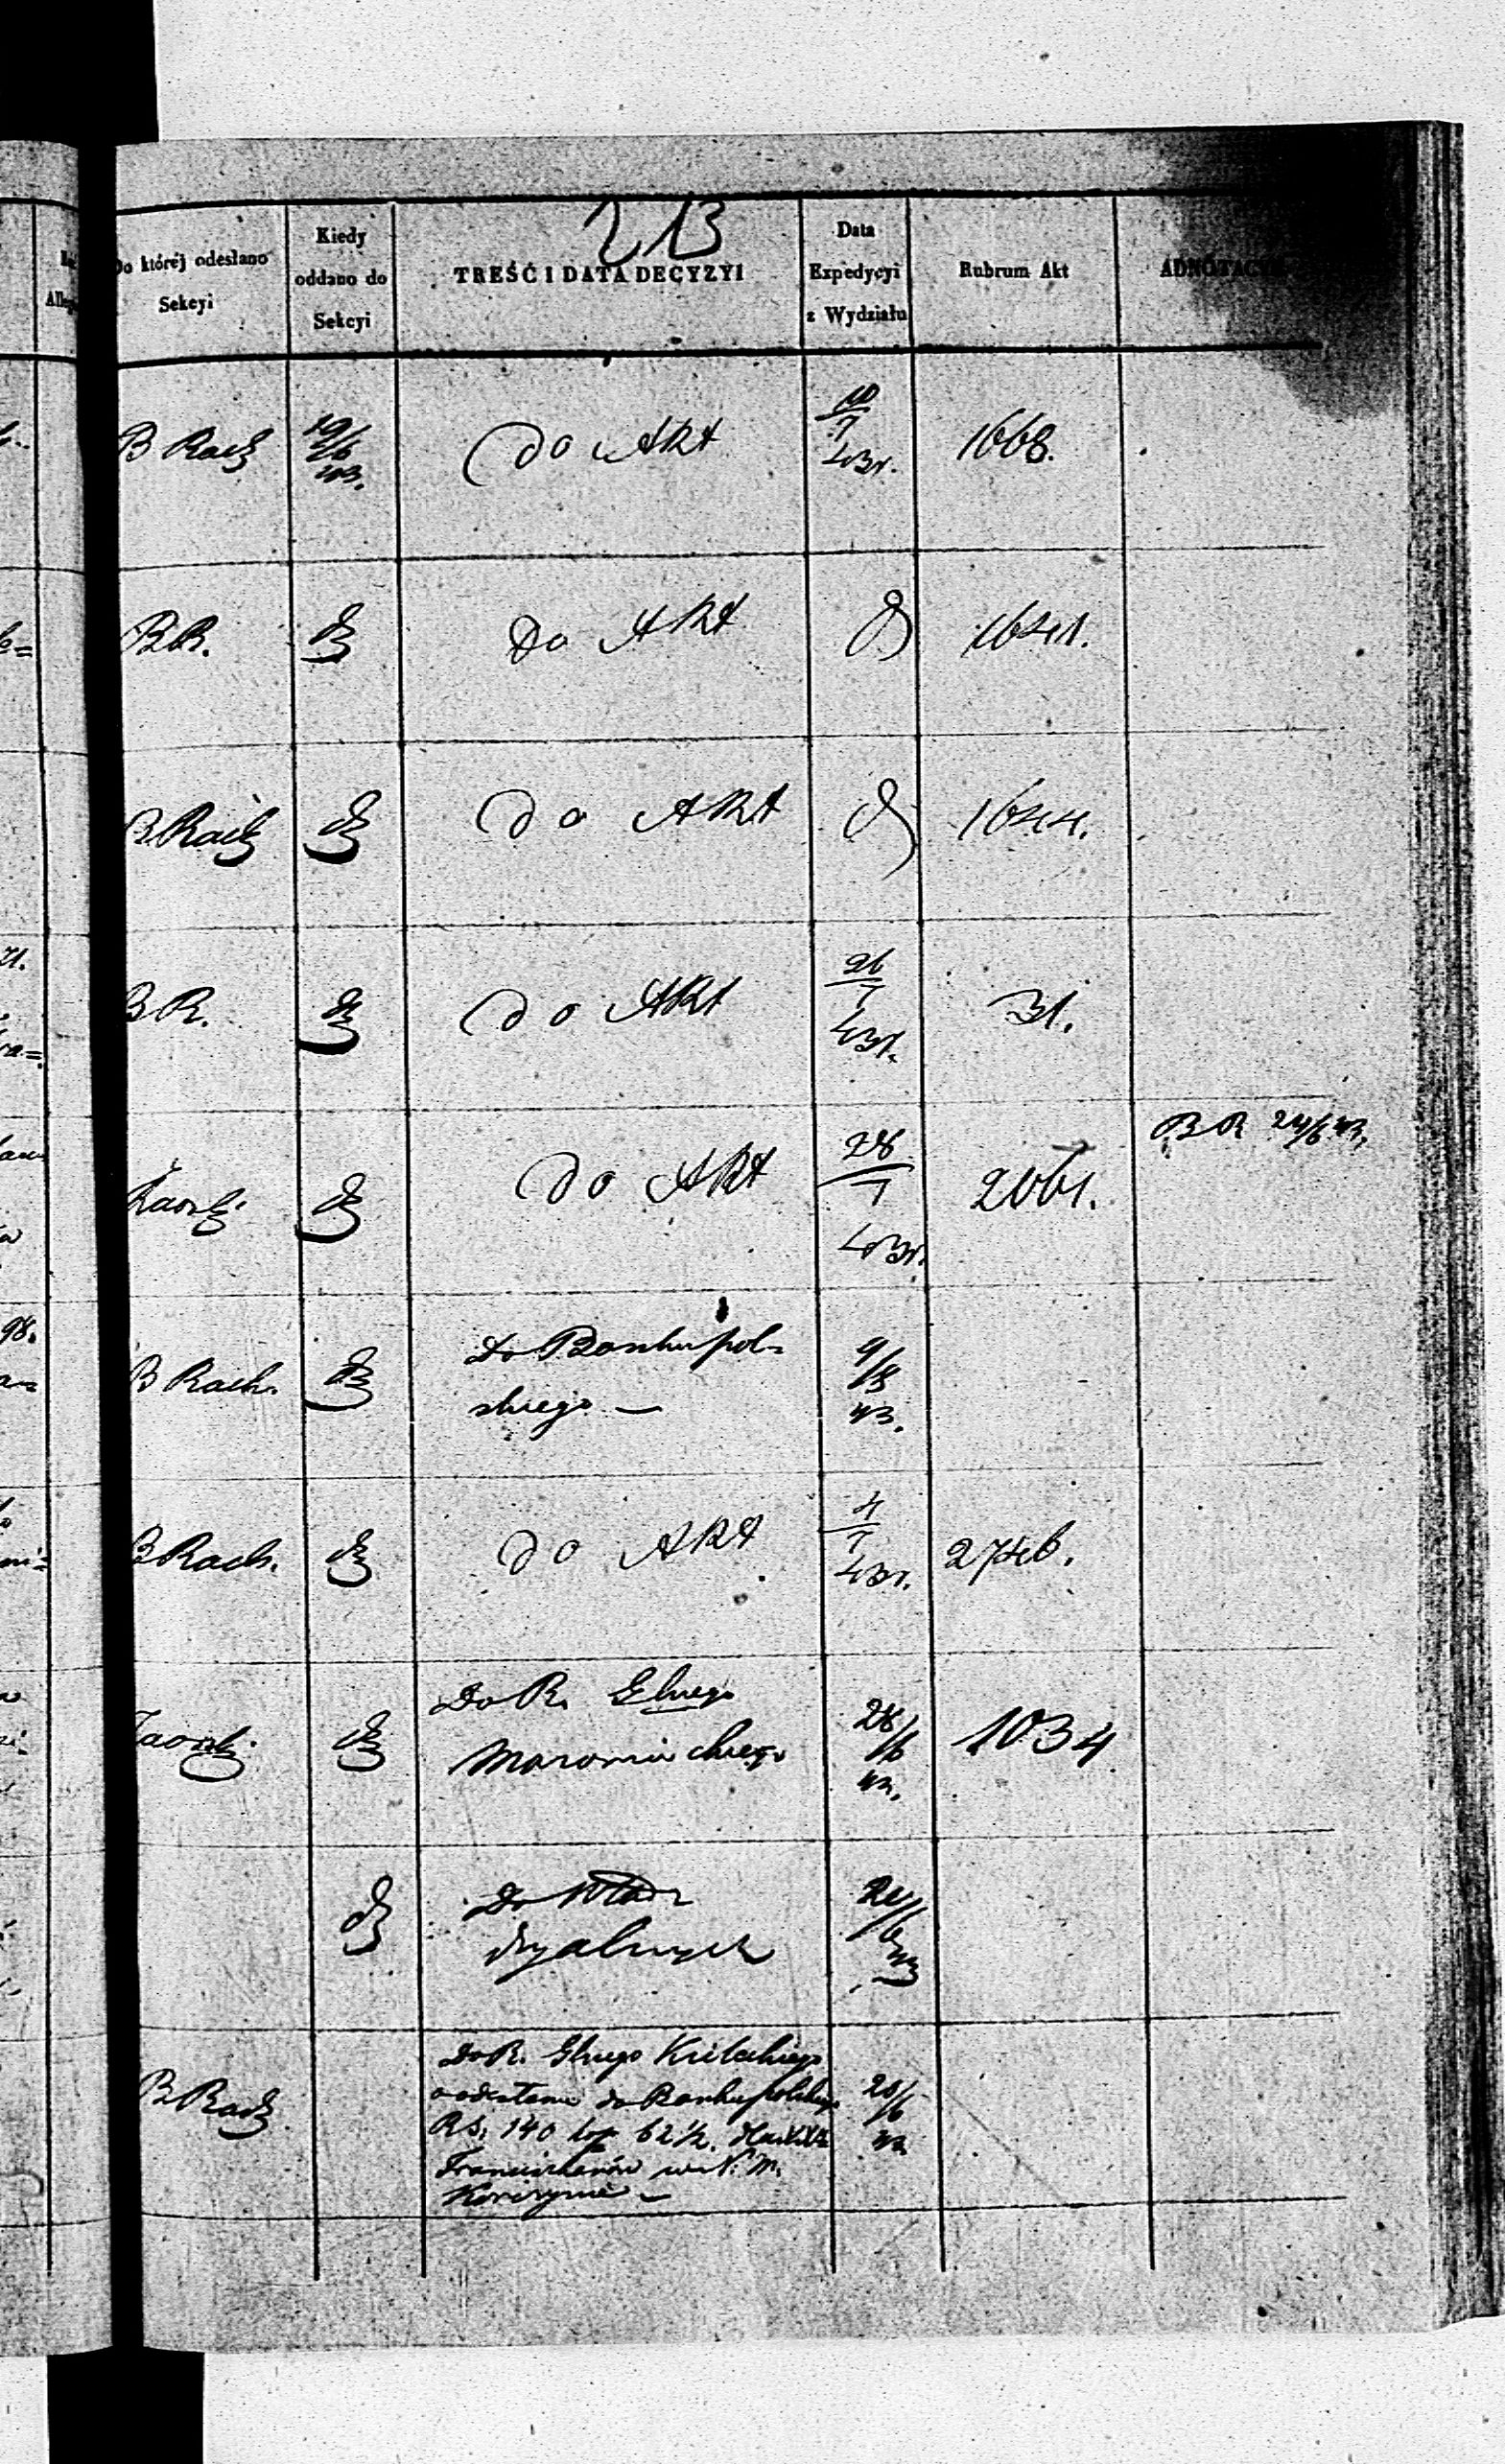 213
Do której odesłano Sekcyi
Kiedy oddano do Sekcyi
TREŚĆ I DATA DECYZYI
Data Expedycyi z Wydziału
Rubrum Akt
ADNOTACYE
B Rach 19/6 43. Do Akt 10/7 43r. 1668.
BR. Do Akt 1641.
B Rach Do Akt 1644.
BR. Do Akt 26/7 43r. 31.
BR 24/6 43.
Do Akt 28/7 43r. 2061.
B Rach. Do Banku pol-
skiego — 9/8 43.
B Rach. Do Akt 4/7 43r. 2746.
Do R. Glnego
Mazowieckiego 28/6 43. 1034
Do Władz
21/6 43
B Rach
Do R. Glnego Kieleckiego
o odesłanie do Banku polskiego 20/6 43
RS. 140 kop 62½.
Franciszkanów w N. M.
Korczynie —